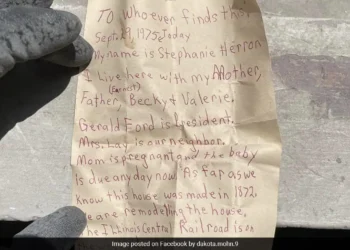 TO Whoever finds this
Sept. 29, 1975, Today
My name is Stephanie Herron
I Live here with my Mother,
(Bennett)
Father, Becky & Valerie.
Gerald Ford is President.
Mrs. Lay is our neighbor.
Mom is pregnant and the baby
is due any day now. As far as we
know this house was made in 1872.
We are remodeling the house,
The Illinois Central Railroad is on
Image posted on Facebook by dakota.mohn.9